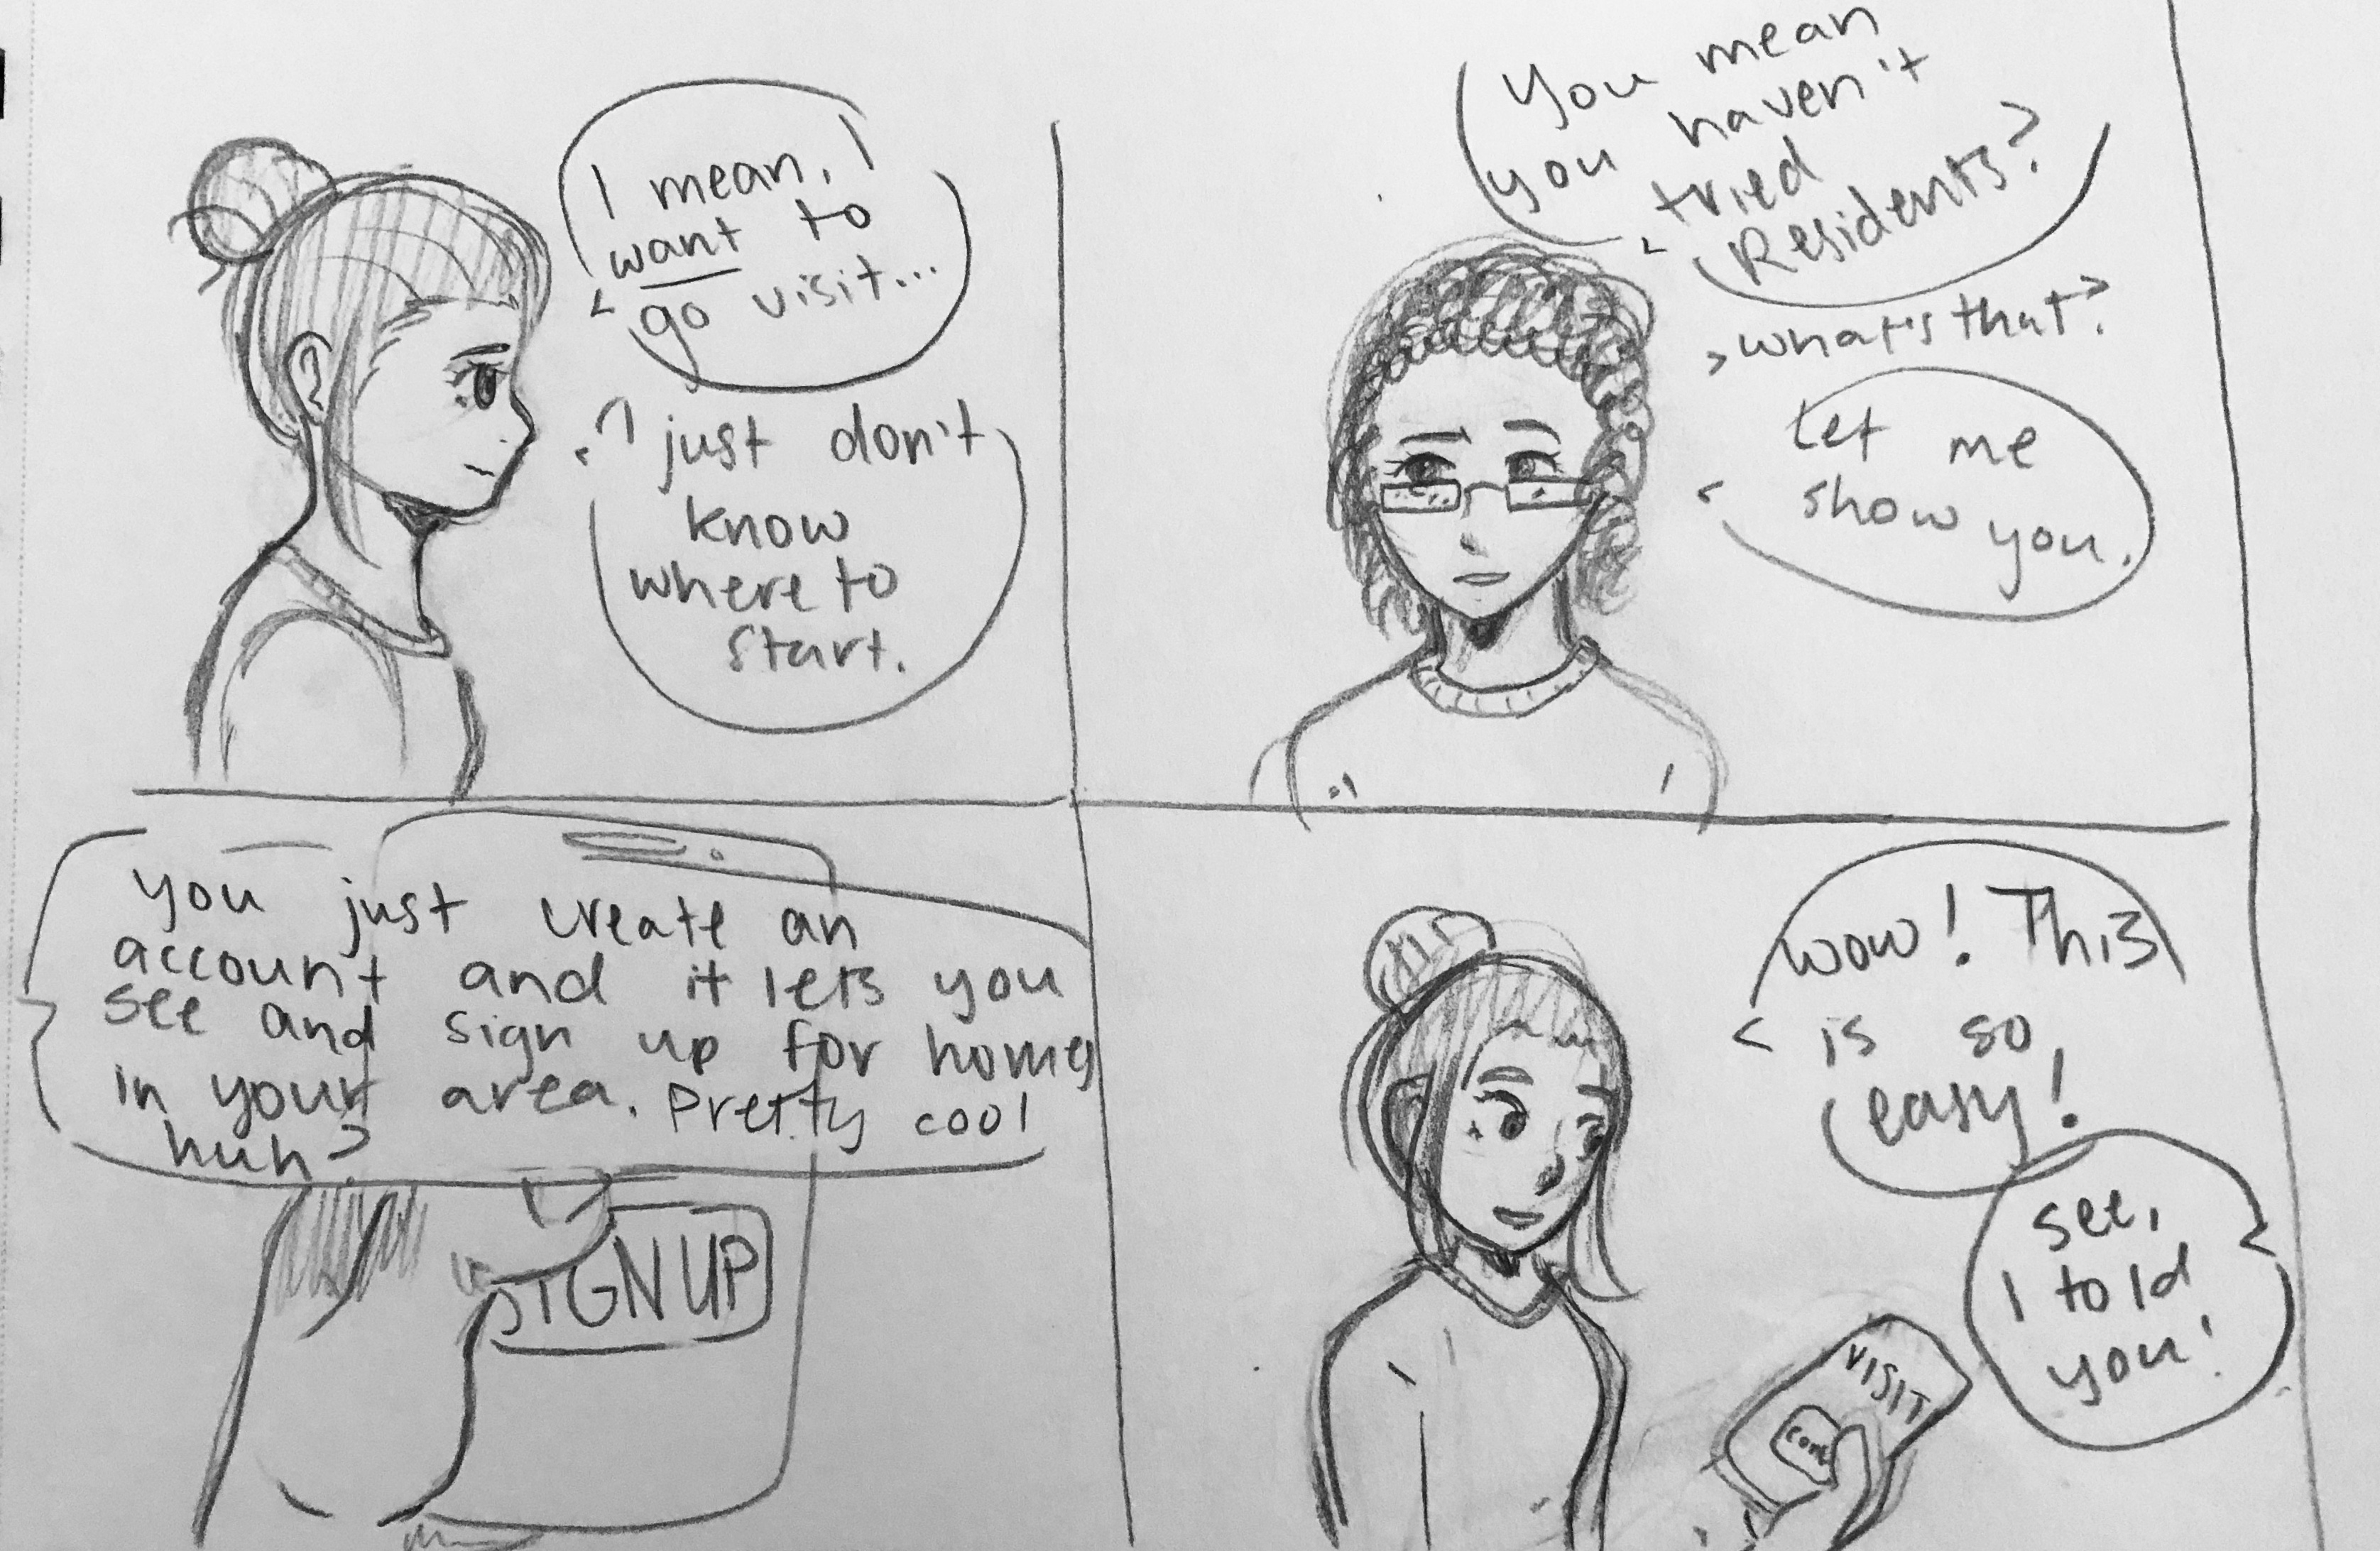 I mean, I
want to
go visit...
I just don't
know
where to
start.
You mean
you haven't
tried
Residents?
what's that?
Let me
show you.
you just create an
account and it lets you
see and sign up for homes
in your area. Pretty cool
huh?
SIGN UP
wow! This
is so
easy!
see,
I told
you!
VISIT